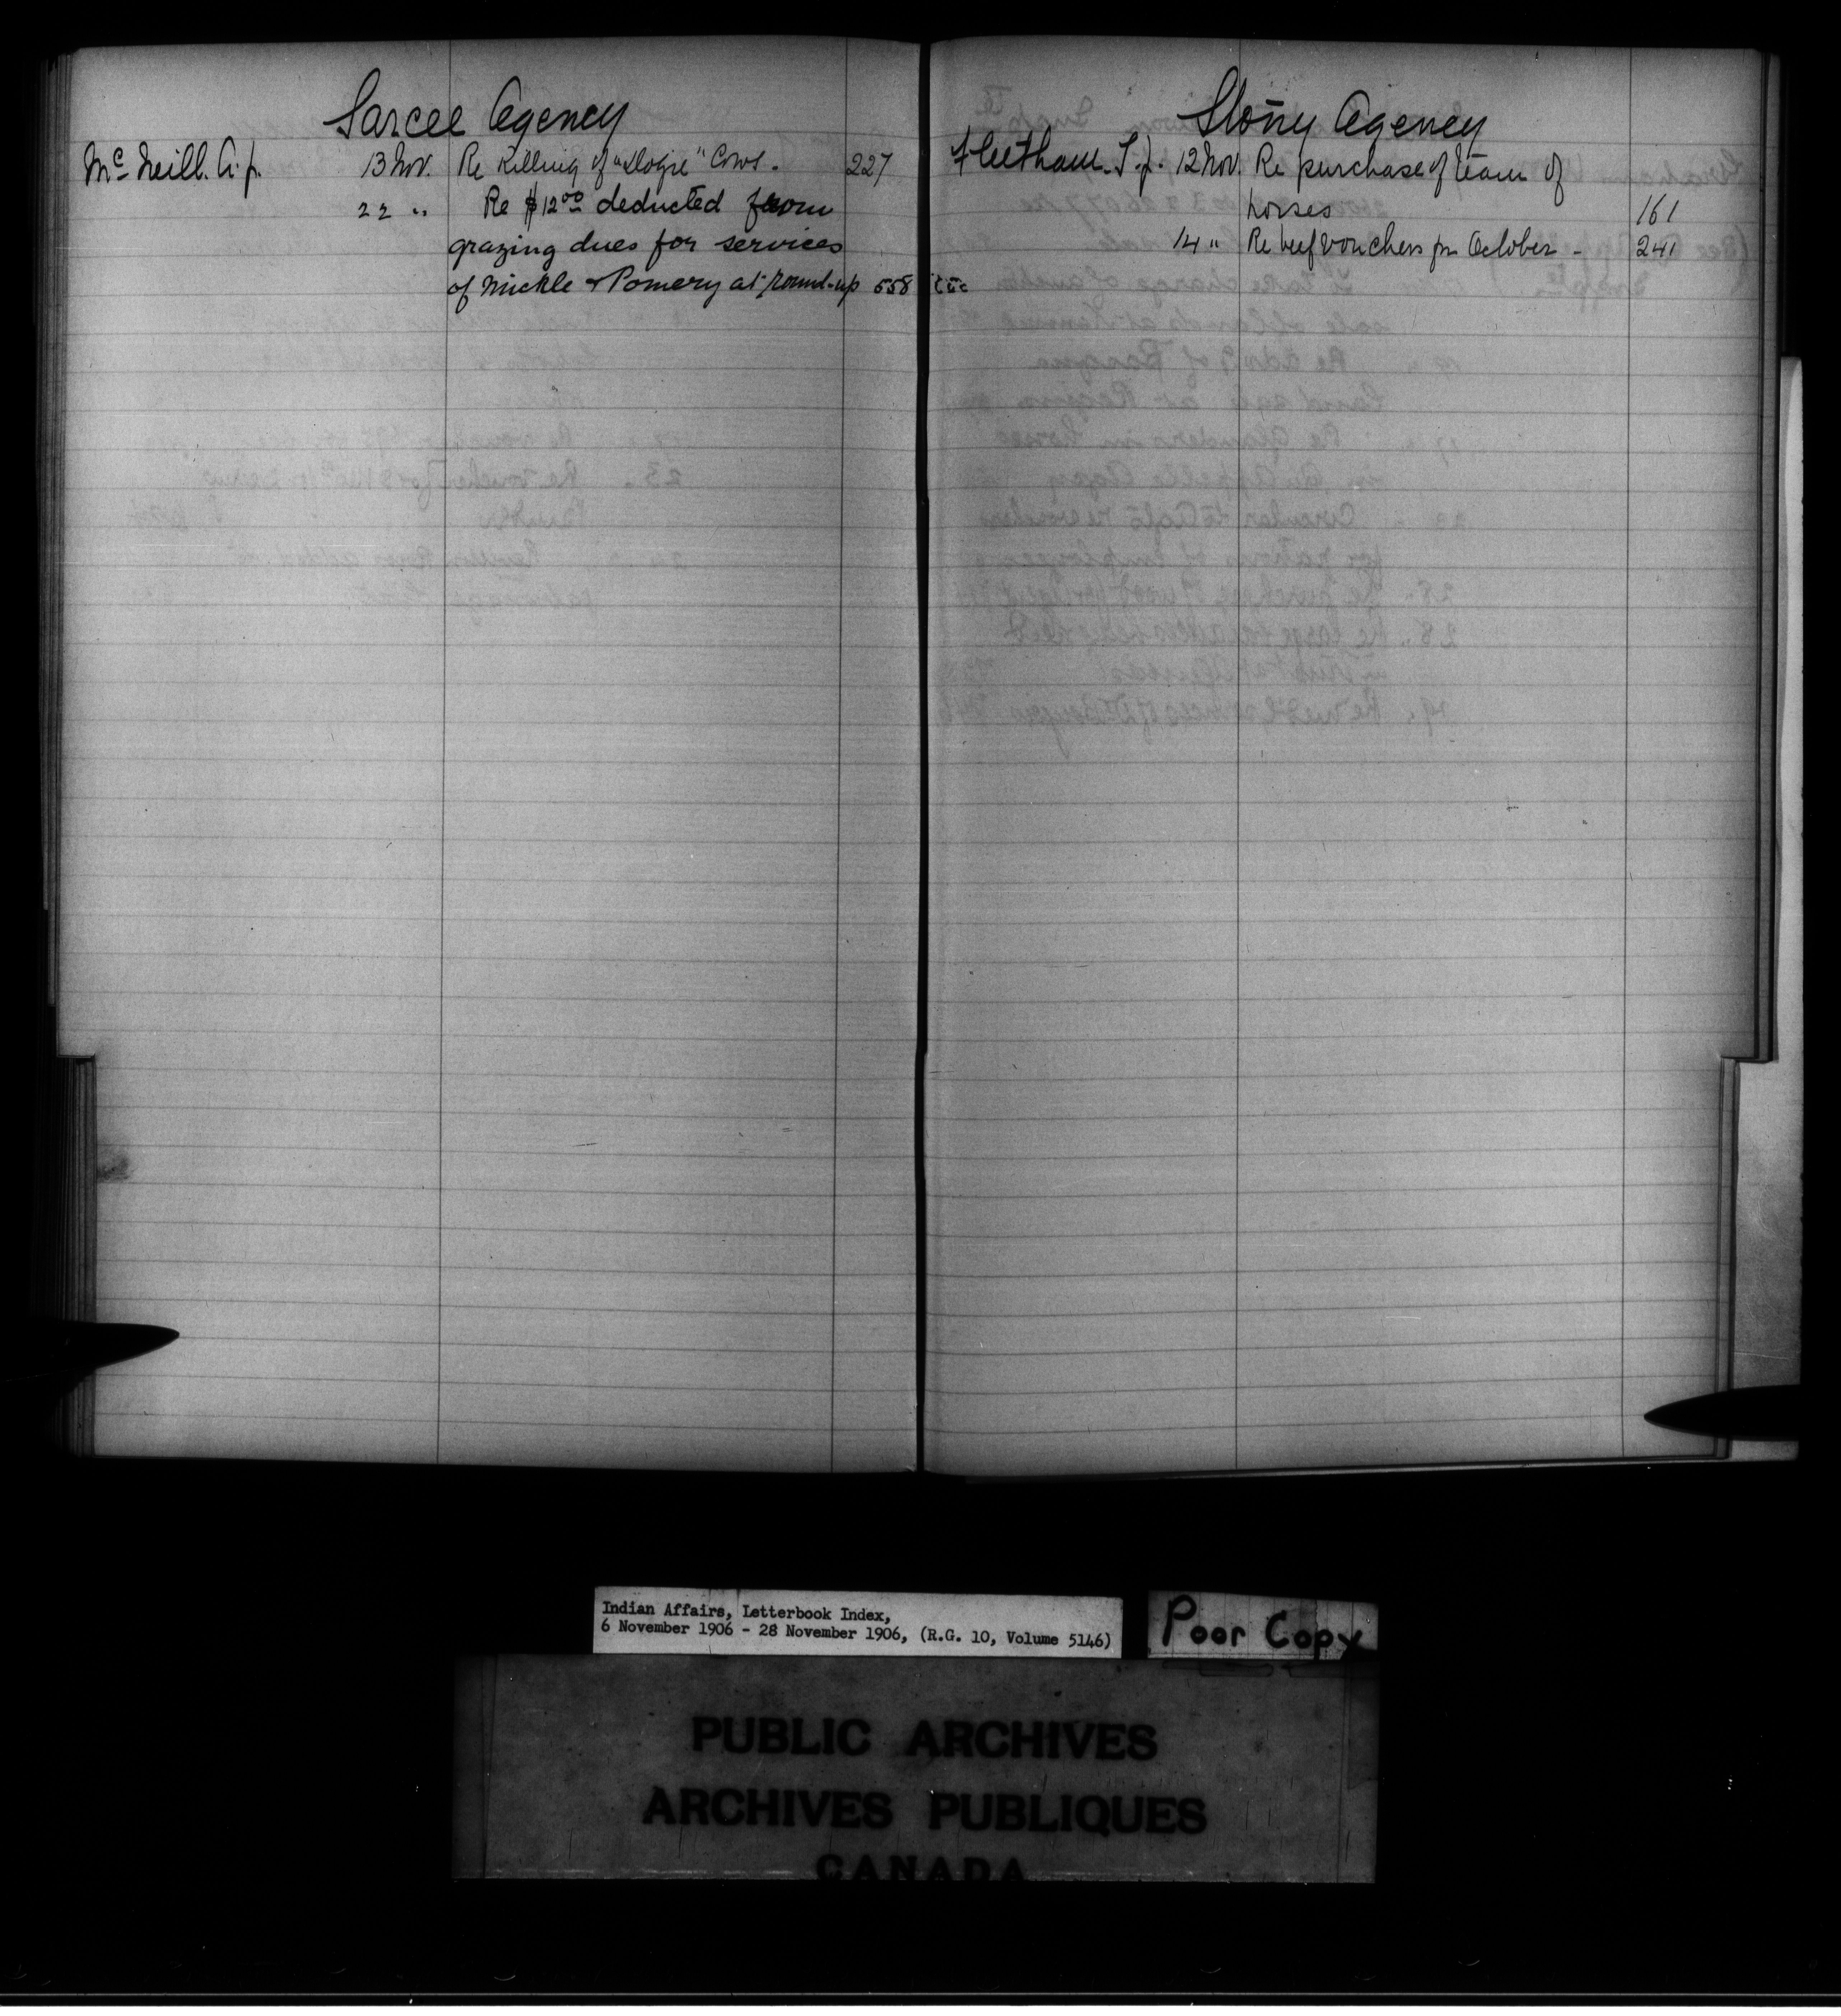 Sarcee Agency
McNeill. A. J. 13 Nov. Re Killing of "dogie" Cows. 227
22 " Re $12.00 deducted from
grazing dues for services
of Mickle & Pomery at round-up 558
Stony Agency
Fleetham. T. J. 12 Nov. Re purchase of team of
horses 161
14 " Re beef vouchers for October - 241
Indian Affairs, Letterbook Index,
6 November 1906 - 28 November 1906, (R.G. 10, Volume 5146)
Poor Copy
PUBLIC ARCHIVES
ARCHIVES PUBLIQUES
CANADA